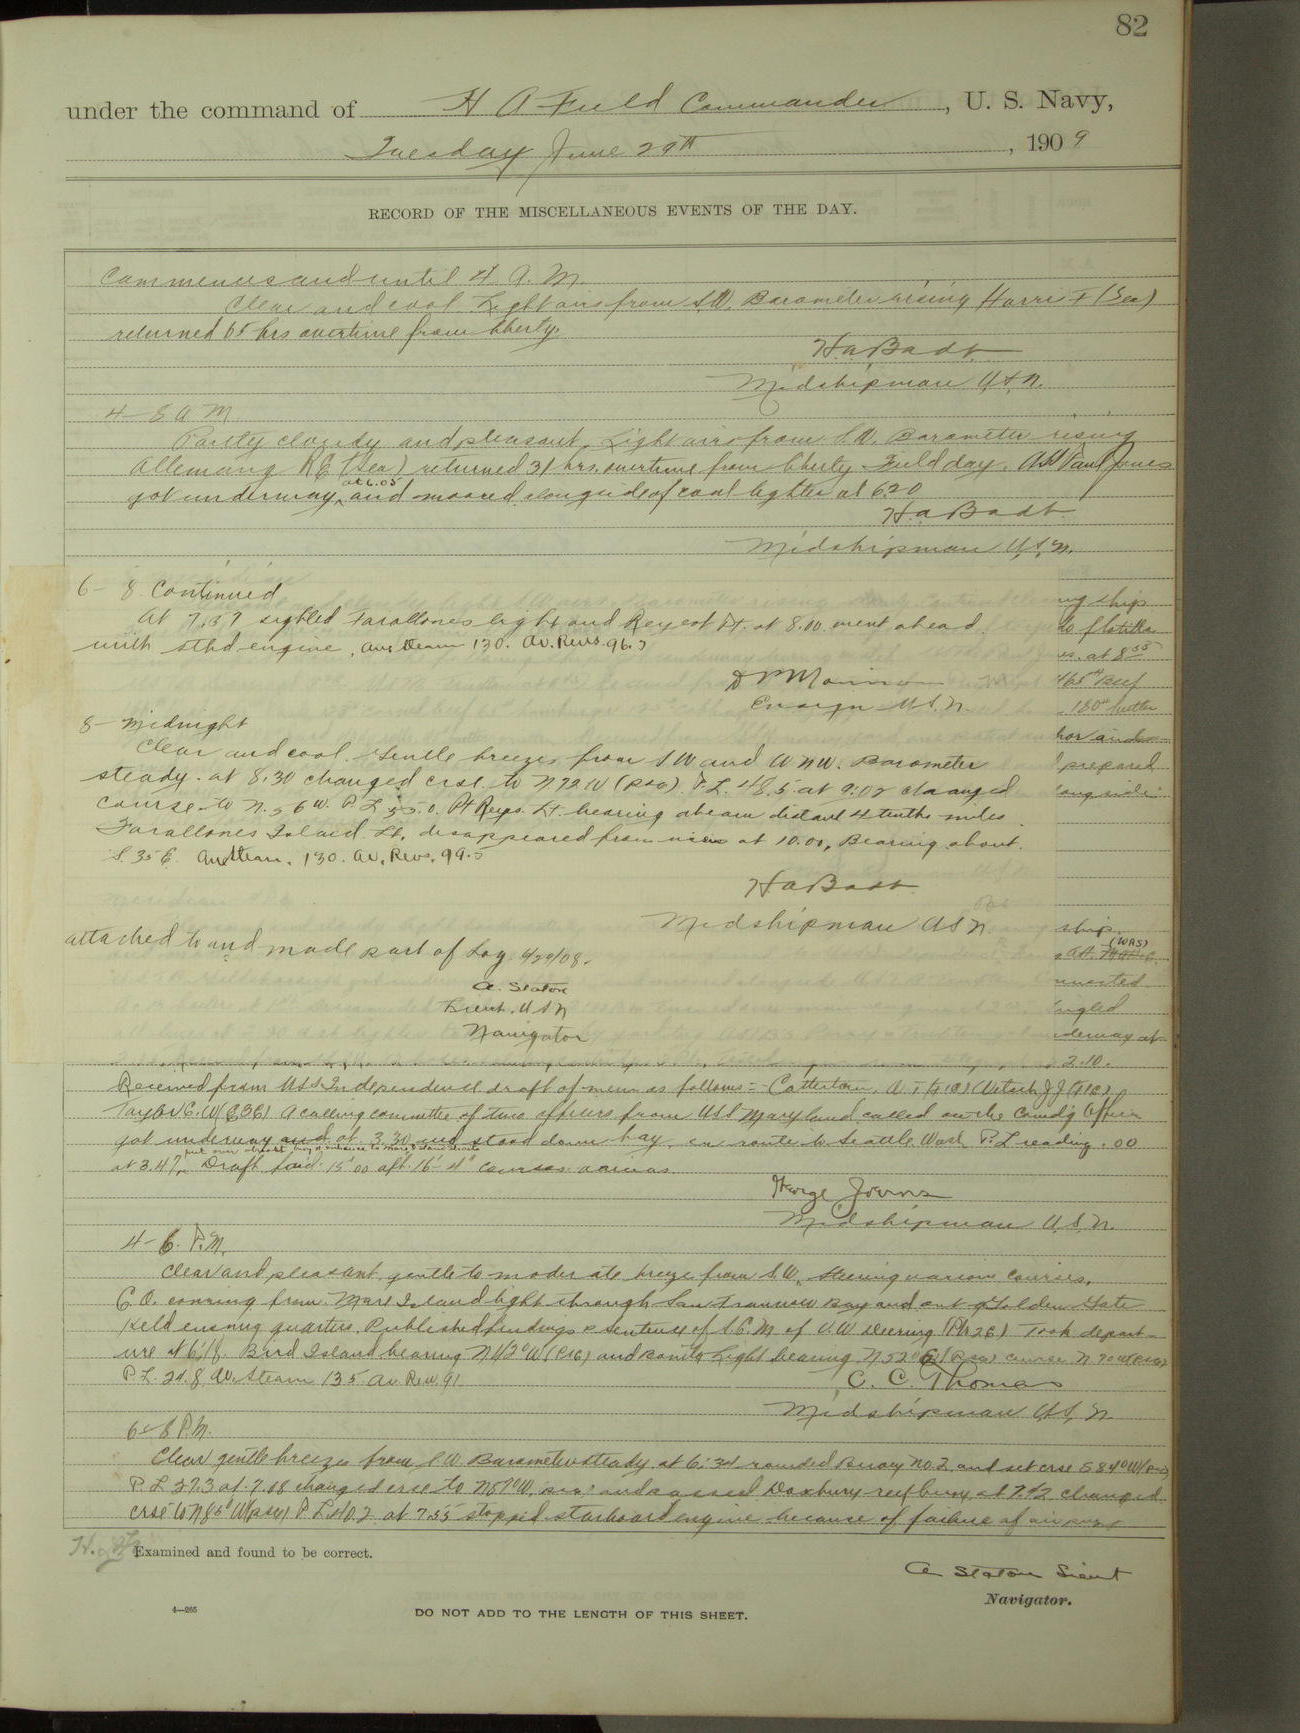 82
under the command of H A Field Commander, U. S. Navy,
Tuesday June 29th, 1909
RECORD OF THE MISCELLANEOUS EVENTS OF THE DAY.
Commences and until 4 A. M.
Clear and cool. Light airs from S.W. Barometer rising Harris F (Sea)
returned 65 hrs overtime from liberty.
H. a. Badt
Midshipman U.S.N.
4- 8 A M
Partly cloudy and pleasant. Light airs from S.W. Barometer rising
Allemang R E (Sea) returned 31 hrs. overtime from liberty. Field day. USS Paul Jones
got underway at 6.05 and moored alongside of coal lighter at 6.20
H. a. Badt
Midshipman U.S.N.
6- 8 Continued
ng ship
At 7.37 sighted Farallones light and Reyes Pt. at 8.00 went ahead
flotilla
with stbd engine. Av. Steam 130. Av. Revs. 96.5
at 8 55
465# Beef
Ensign U.S.N.
180# butter
8- Midnight
Clear and cool. Gentle breezes from SW and WNW. Barometer
prepared
steady. at 8.30 changed crse to N 72 W (psc) P.L. 48.5 at 9:02 changed
longside
course to N. 56 W. P.L. 53.0. Pt Reyes Lt. bearing abeam distant 4 tenths miles.
Farallones Island Lt. disappeared from view at 10.00, Bearing about
S. 35 E. Av. Steam. 130. Av. Revs. 99.5
H a Badt
Midshipman USN
ship.
attached to and made part of Log. 6/29/08.
(WAS)
A. Staton
Lieut. U S N
Navigator
nderway at
2.10.
Received from USS Independence draft of men as follows:- Catterton, A. T.
Taylor C. W (C36) A calling committee of two officers from USS Maryland called on the Comd'g Officer
got underway and at 3.30 and stood down bay, en route to Seattle Wash. P.L reading .00
at 3.47. Draft for'd 15' 00 aft 16' 4" courses various
George Joerns
Midshipman U.S.N.
4- 6. P.M.
Clear and pleasant gentle to moderate breeze from S.W. Steering various courses,
C.O. conning from Mare Island light through San Francisco Bay and out of Golden Gate
Held evening quarters. Published findings & sentence of S.C.M of V.W Deering (Ph26) Took depart-
ure at 6:18. Bird Island bearing N 42° W (PSC) and Bonita Light bearing N 52° E (Psc) course N 70 W (PSC)
P.L. 21.8 Av. Steam 135 Av Rev. 91
C. C. Thomas
Midshipman U.S.N.
6- 8 P.M.
Clear gentle breeze from S.W. Barometer steady at 6:34 rounded Buoy No. 2 and set crse S 84° W (psc)
P.L 27.3 at 7.18 changed crse to N 57° W. psc and passed Duxbury reef buoy, at 7.42 changed
crse to N 85° W (psc) P.L. 40.2 at 7.55 stopped starboard engine because of failure of air pump
Examined and found to be correct.
A Staton Lieut
Navigator.
4—265
DO NOT ADD TO THE LENGTH OF THIS SHEET.